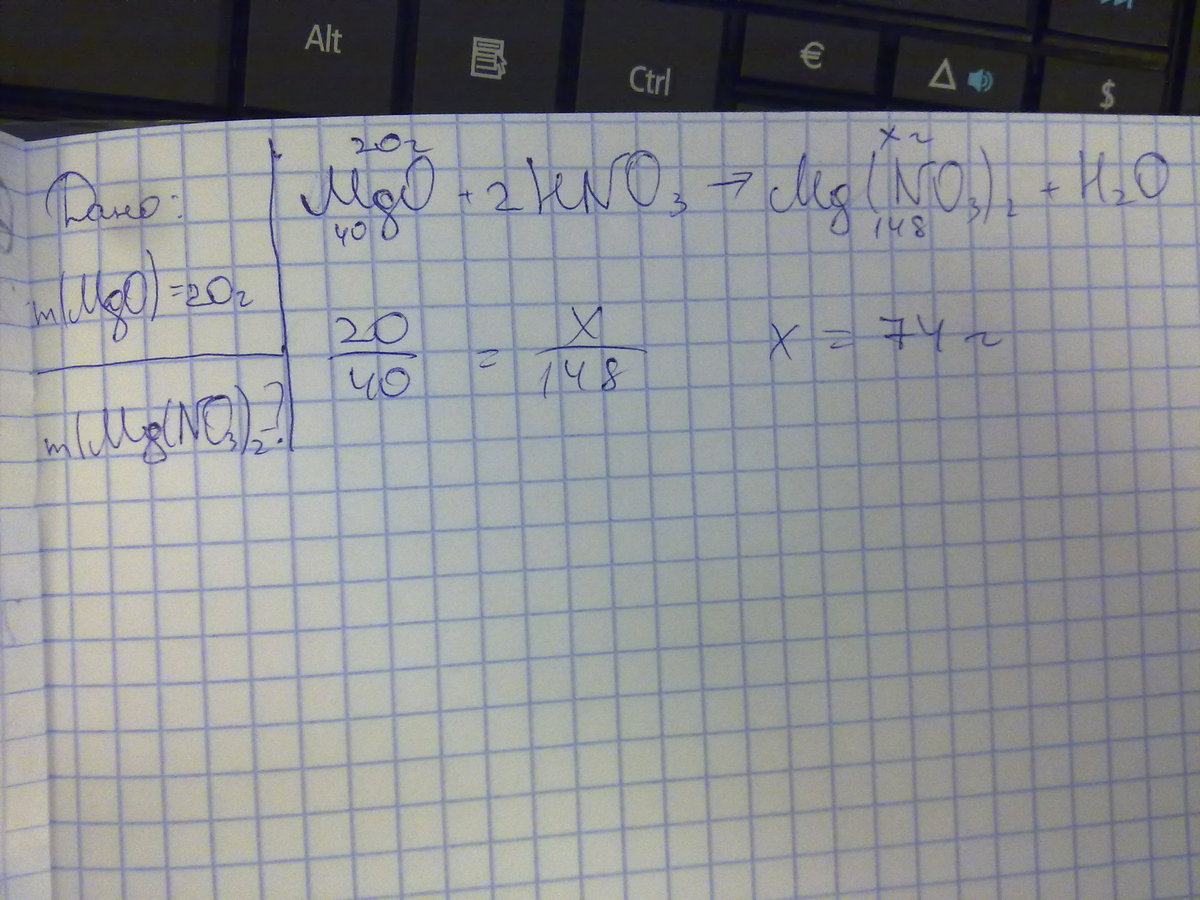 Alt
Ctrl
€
$
Дано:
m(MgO)=20г
m(Mg(NO₃)₂-?
20г
xг
MgO + 2HNO₃ → Mg(NO₃)₂ + H₂O
40
148
20/40 = x/148
x = 74 г